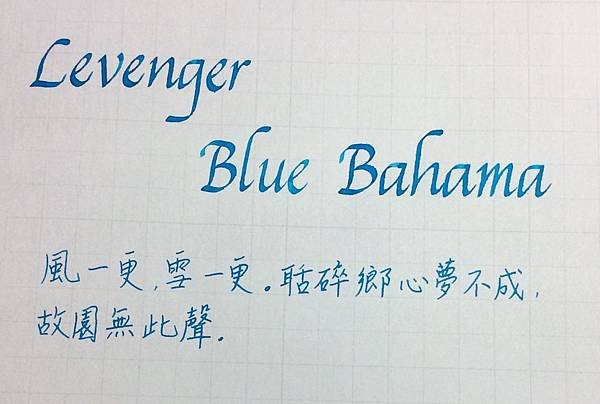 Levenger
Blue Bahama
風一更,雪一更。聒碎鄉心夢不成,
故園無此聲.